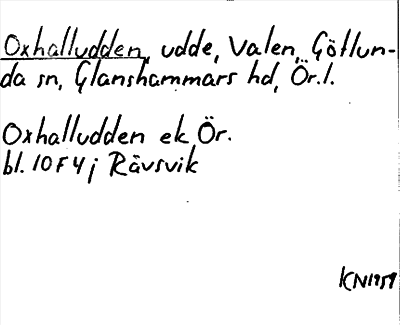 Oxhalludden, udde, Valen, Götlun-
da sn, Glanshammars hd, Ör.l.
Oxhalludden ek Ör.
bl. 10F4j Rävsvik
KN1959